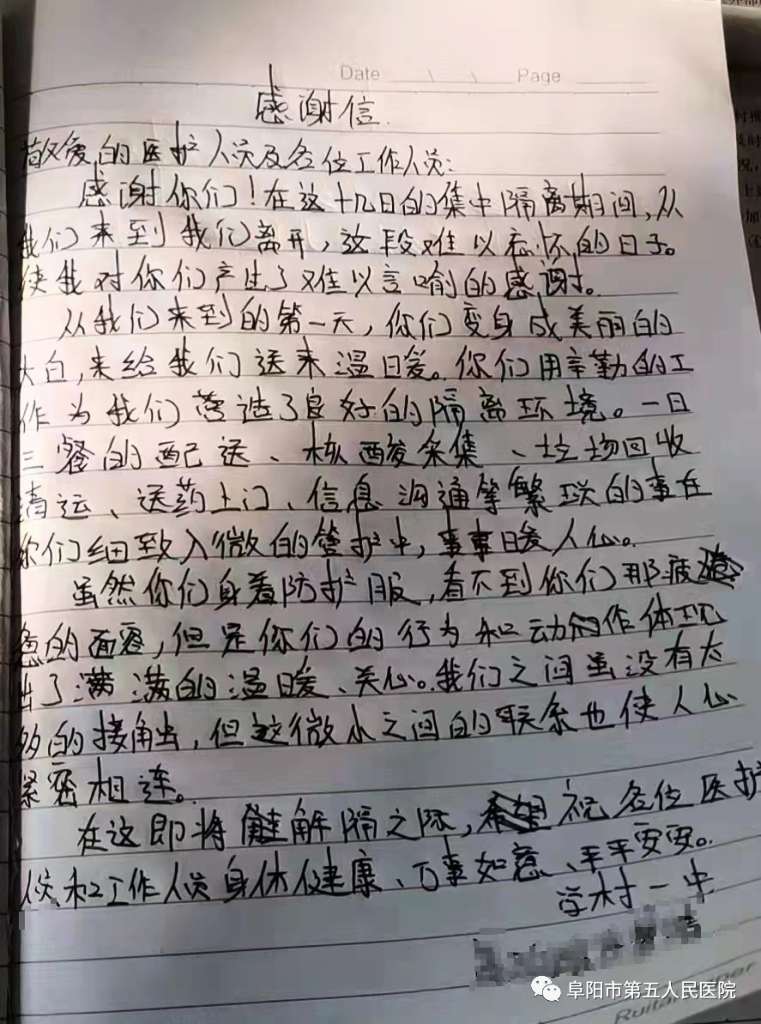 Date \ \ Page
感谢信
敬爱的医护人员及各位工作人员:
感谢你们!在这十几日的集中隔离期间,从
我们来到我们离开,这段难以忘怀的日子。
使我对你们产生了难以言喻的感谢。
从我们来到的第一天,你们变身成美丽的
大白,来给我们送来温暖。你们用辛勤的工
作为我们营造了良好的隔离环境。一日
三餐的配送、核酸采集、垃圾回收
清运、送药上门、信息沟通等繁琐的事在
你们细致入微的管护中,事事暖人心。
虽然你们身着防护服,看不到你们那疲
惫的面容,但是你们的行为和动作体现
出了满满的温暖、关心。我们之间虽没有太
多的接触,但这微小之间的联系也使人心
紧密相连。
在这即将解隔之际,祝各位医护
人员和工作人员身体健康、万事如意、平平安安。
学村一中
阜阳市第五人民医院